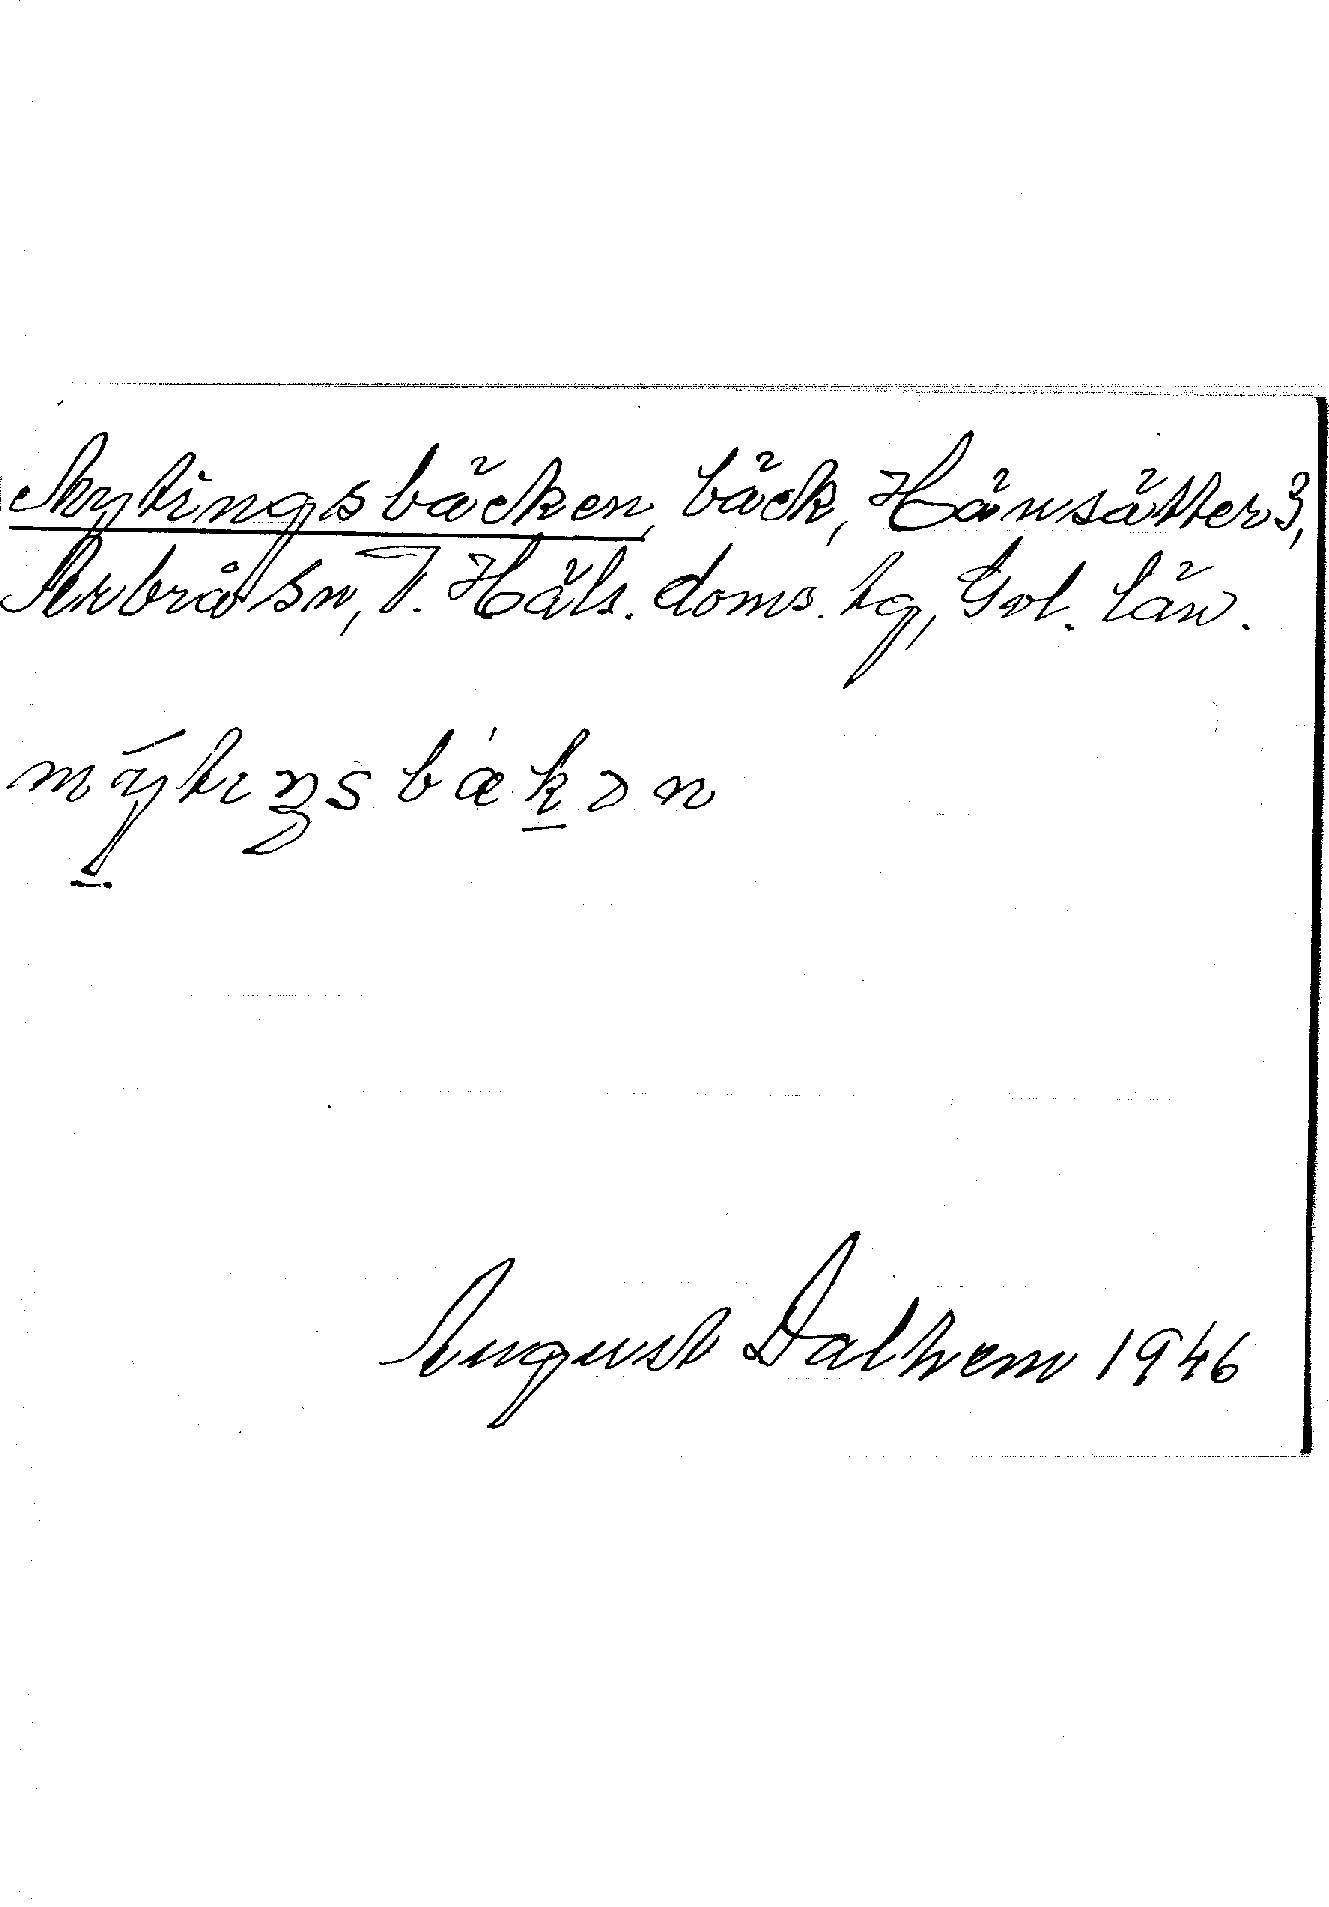 Mytingsbäcken, bäck, Hänsätter 3,
Arbrå sn, V. Häls. doms. tg, Gvl. län.
mýtıŋsbækən
August Dalhem 1946